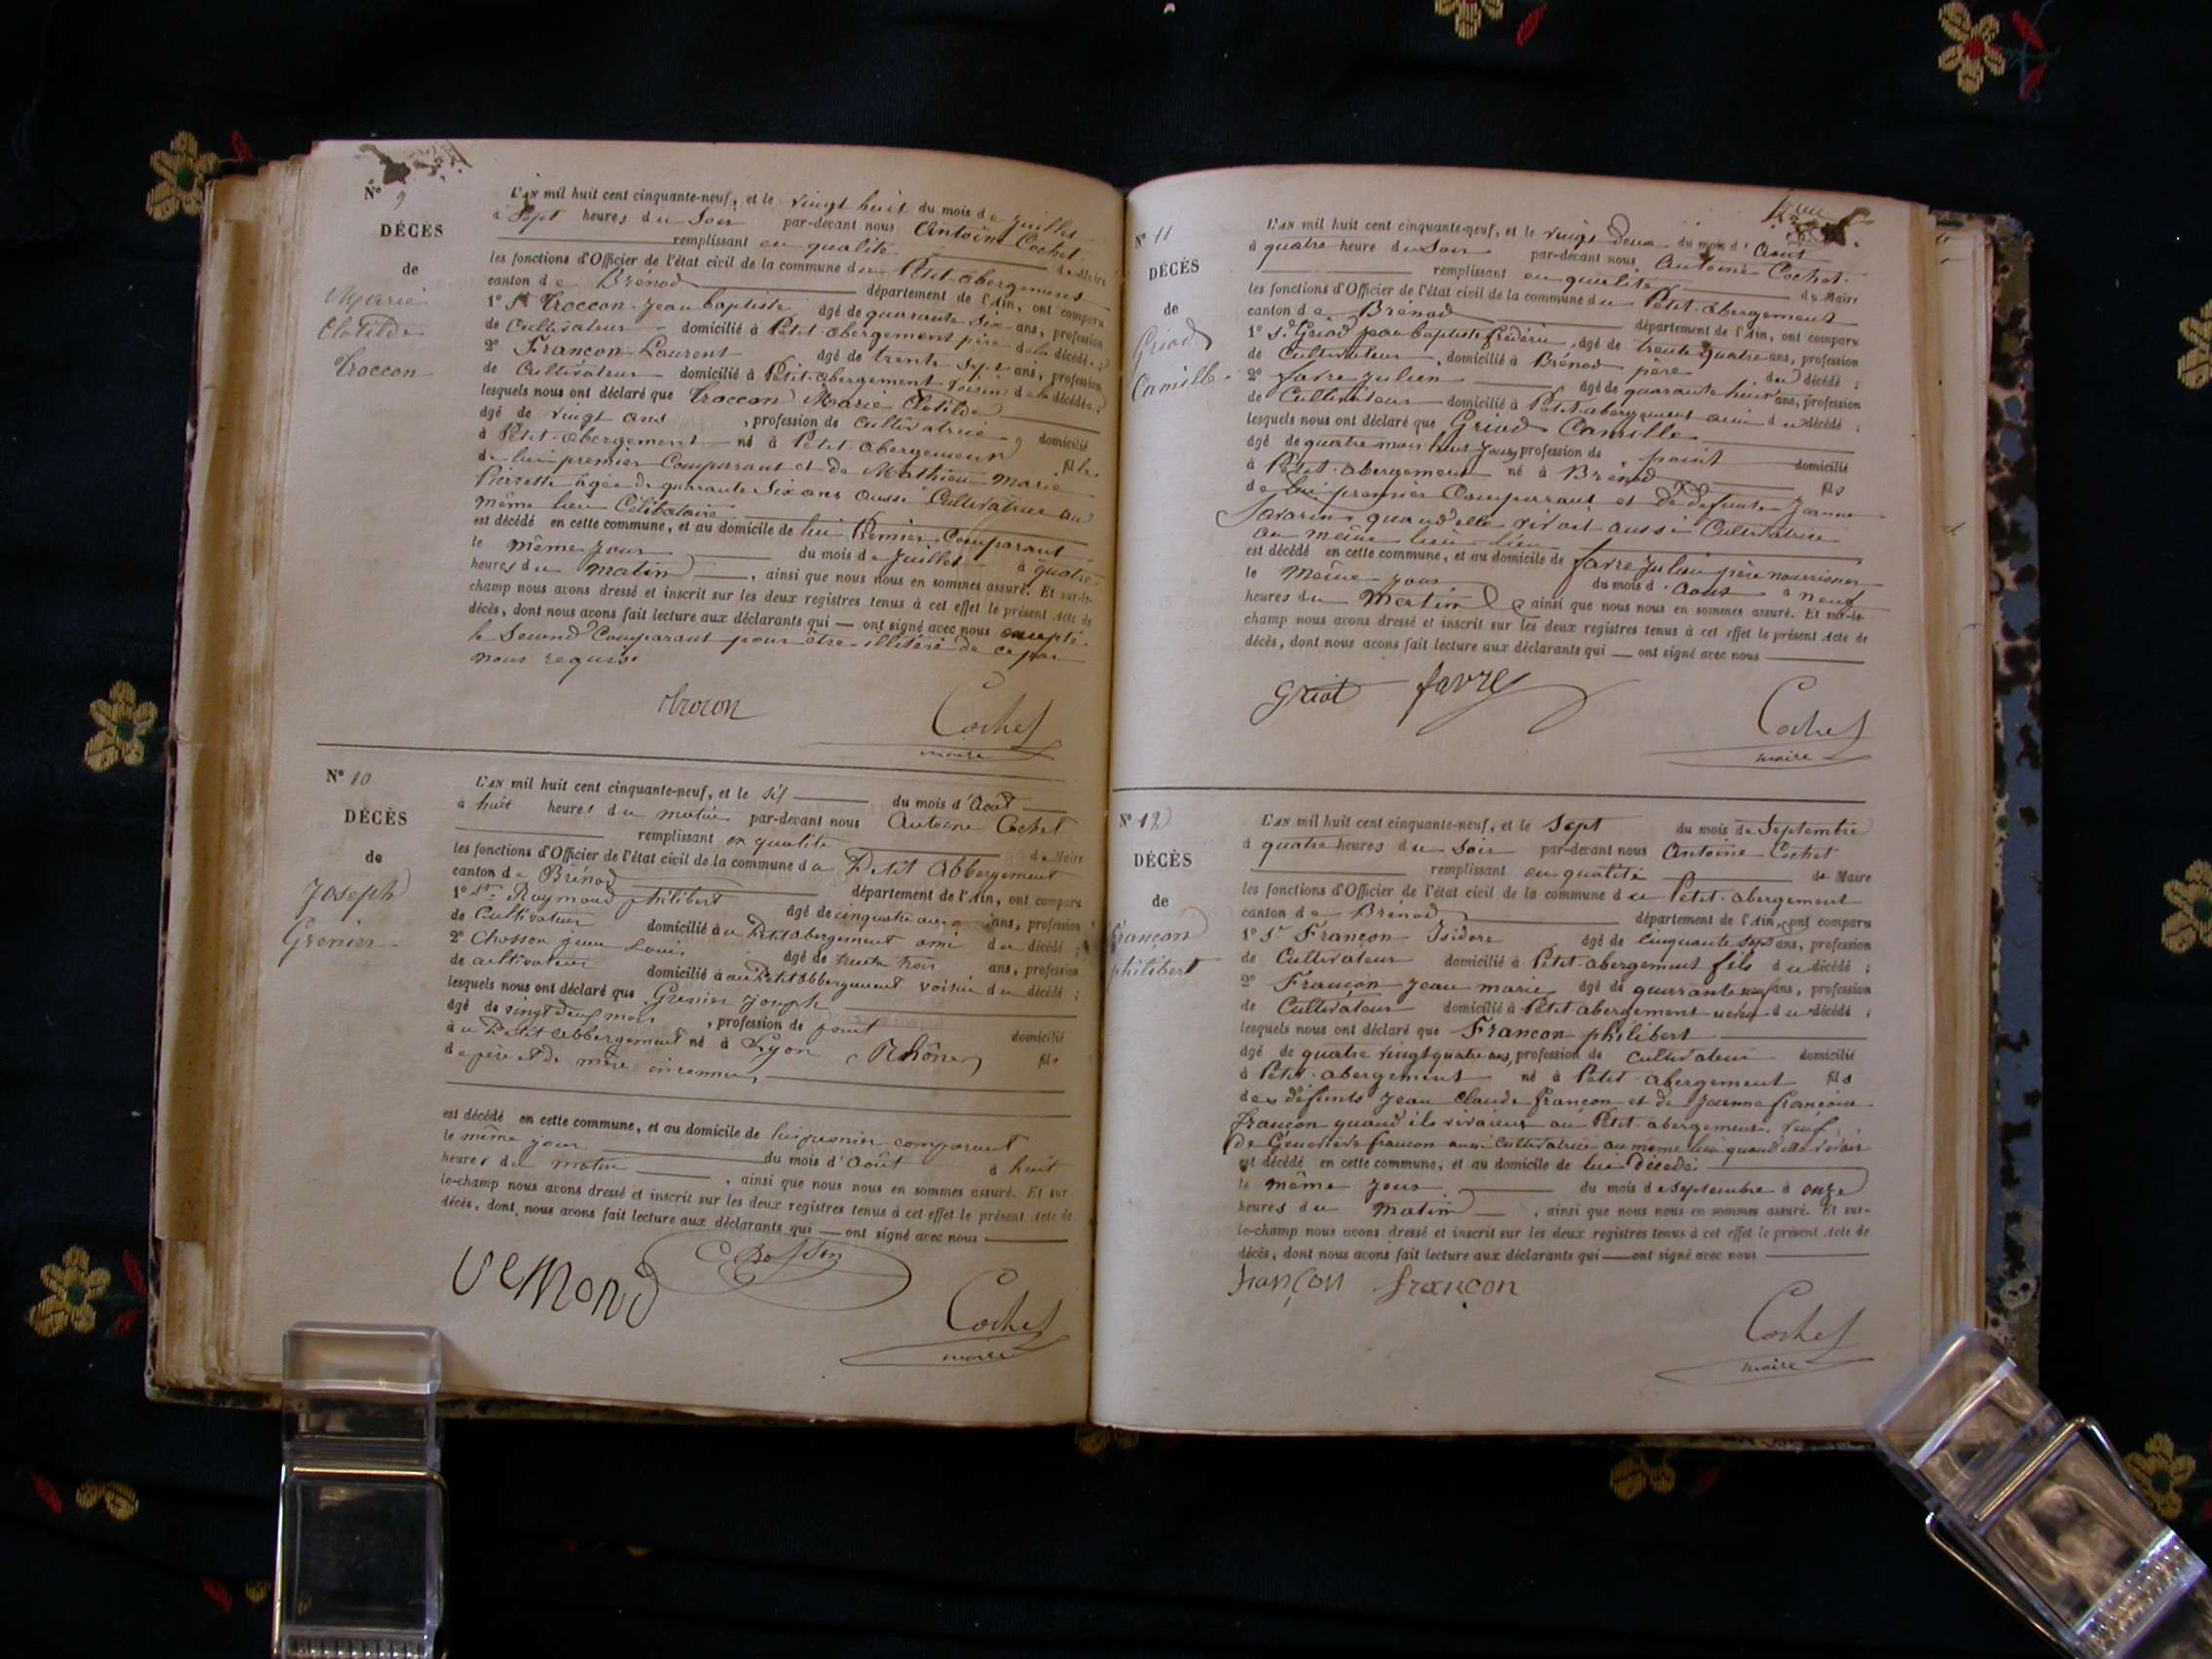 N° 9
DÉCÈS
de
Marie
Clotilde
Troccon
L'AN mil huit cent cinquante-neuf, et le vingt huit du mois de Juillet
à Sept heures du Soir par-devant nous Antoine Cochet
remplissant en qualité de Maire
les fonctions d'Officier de l'état civil de la commune du Petit-abergement
canton de Brénod département de l'Ain, ont comparu
1° Sr Troccon Jean baptiste âgé de quarante Six ans, profession
de Cultivateur domicilié à Petit-abergement père de la décédée ;
2° Francon Laurent âgé de trente Sept ans, profession
de Cultivateur domicilié à Petit-abergement voisin de la décédée ;
lesquels nous ont déclaré que Troccon Marie Clotilde
âgé de vingt ans , profession de Cultivatrice , domicilié
à Petit-abergement né à Petit-abergement fille
de lui premier Comparant et de Mathieu Marie
Pierrette âgée de quarante Six ans aussi Cultivatrice au
même lieu Célibataire
est décédé en cette commune, et au domicile de lui Premier Comparant
le même jour du mois de Juillet à quatre
heures du matin , ainsi que nous nous en sommes assuré. Et sur-le-
champ nous avons dressé et inscrit sur les deux registres tenus à cet effet le présent Acte de
décès, dont nous avons fait lecture aux déclarants qui — ont signé avec nous excepté
le Second Comparant pour être illitéré de ce par
nous requis.
Trocon
Cochet
maire
N° 10
DÉCÈS
de
Joseph
Grenier
L'AN mil huit cent cinquante-neuf, et le six du mois d'Août
à huit heures du matin par-devant nous Antoine Cochet
remplissant en qualité de Maire
les fonctions d'Officier de l'état civil de la commune du Petit Abbergement
canton de Brénod département de l'Ain, ont comparu
1° Sr Raymond philibert âgé de cinquante ans, profession
de Cultivateur domicilié à u Petit abergement ami du décédé ;
2° Chosson jean Louis âgé de trente trois ans, profession
de cultivateur domicilié à au Petit Abbergement voisin du décédé ;
lesquels nous ont déclaré que Grenier joseph
âgé de vingt deux mois , profession de point domicilié
à u Petit Abbergement né à Lyon (Rhône) fils
de père et de mère inconnus
est décédé en cette commune, et au domicile de lui premier comparant
le même jour du mois d'Août à huit
heures du matin , ainsi que nous nous en sommes assuré. Et sur-
le-champ nous avons dressé et inscrit sur les deux registres tenus à cet effet le présent Acte de
décès, dont nous avons fait lecture aux déclarants qui — ont signé avec nous
Cochet
maire
N° 11
DÉCÈS
de
Griod
Camille
L'AN mil huit cent cinquante-neuf, et le vingt deux du mois d'Aout
à quatre heure du Soir par-devant nous Antoine Cochet
remplissant en qualité de Maire
les fonctions d'Officier de l'état civil de la commune du Petit-abergement
canton de Brénod département de l'Ain, ont comparu
1° Sr Griod Jean baptiste frédéric âgé de trente quatre ans, profession
de Cultivateur , domicilié à Brénod père du décédé ;
2° favre Julien âgé de quarante huit ans, profession
de Cultivateur domicilié à Petit-abergement ami du décédé ;
lesquels nous ont déclaré que Griod Camille
âgé de quatre mois huit jours, profession de point domicilié
à Petit-abergement né à Brénod fils
de lui premier Comparant et de défunte Jeanne
Savarin quand elle vivait aussi Cultivatrice
au même lieu
est décédé en cette commune, et au domicile de favre Julien père nourricier
le même jour du mois d'Aout à neuf
heures du Matin ainsi que nous nous en sommes assuré. Et sur-le-
champ nous avons dressé et inscrit sur les deux registres tenus à cet effet le présent Acte de
décès, dont nous avons fait lecture aux déclarants qui — ont signé avec nous
Griot favre
Cochet
maire
N° 12
DÉCÈS
de
françon
philibert
L'AN mil huit cent cinquante-neuf, et le Sept du mois de Septembre
à quatre heures du Soir par-devant nous Antoine Cochet
remplissant en qualité de Maire
les fonctions d'Officier de l'état civil de la commune du Petit-abergement
canton de Brénod département de l'Ain, ont comparu
1° Sr Françon Isidore âgé de cinquante sept ans, profession
de Cultivateur domicilié à Petit-abergement fils du décédé ;
2° Françon Jean marie âgé de quarante neuf ans, profession
de Cultivateur domicilié à Petit-abergement neveu du décédé ;
lesquels nous ont déclaré que Francon philibert
âgé de quatre vingt quatre ans, profession de cultivateur domicilié
à Petit-abergement né à Petit-abergement fils
des défunts Jean Claude françon et de Jeanne françoise
françon quand ils vivaient au Petit-abergement. veuf
de Genevieve francon aussi Cultivatrice au même lieu quand elle vivait
est décédé en cette commune, et au domicile de lui Décédé
le même jour du mois de Septembre à onze
heures du matin , ainsi que nous nous en sommes assuré. Et sur-
le-champ nous avons dressé et inscrit sur les deux registres tenus à cet effet le présent Acte de
décès, dont nous avons fait lecture aux déclarants qui — ont signé avec nous
françon françon
Cochet
maire